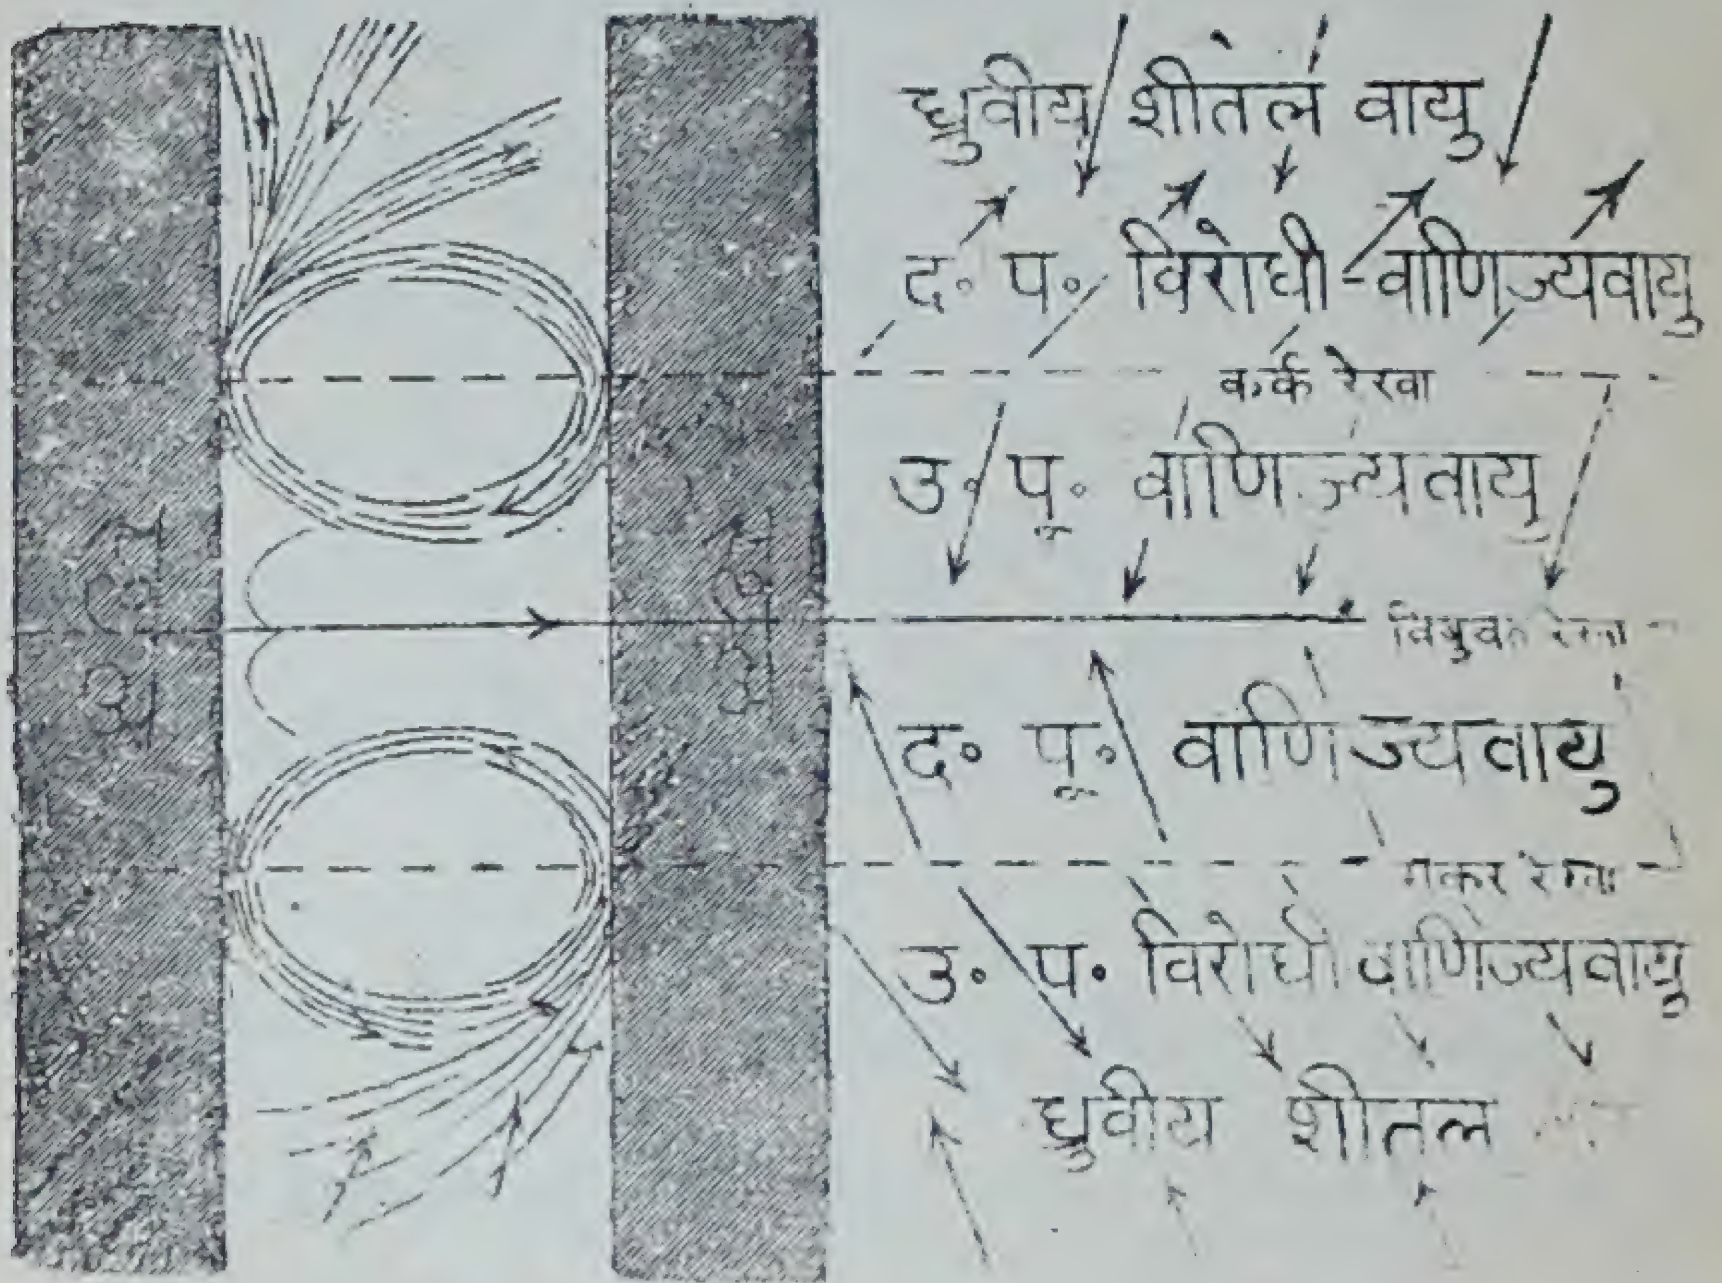 ध्रुवीय शीतल वायु
द॰ प॰ विरोधी-वाणिज्यवायु
कर्क रेखा
उ॰ पू॰ वाणिज्यवायु
विषुवत रेखा
द॰ पू॰ वाणिज्यवायु
मकर रेखा
उ॰ प॰ विरोधी वाणिज्यवायु
ध्रुवीय शीतल
स्थल